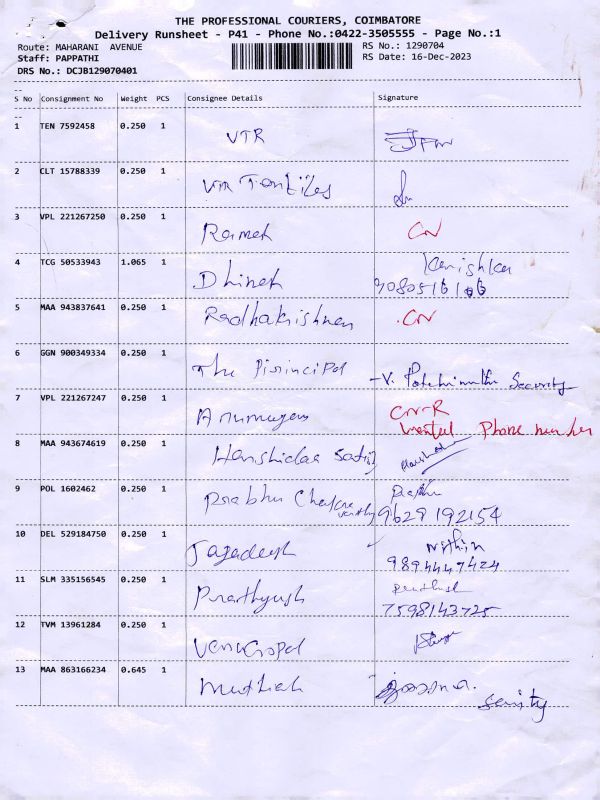 THE PROFESSIONAL COURIERS, COIMBATORE
Delivery Runsheet - P41 - Phone No.:0422-3505555 - Page No.:1
Route: MAHARANI AVENUE RS No.: 1290704
Staff: PAPPATHI RS Date: 16-Dec-2023
DRS No.: DCJB129070401
S No Consignment No Weight PCS Consignee Details Signature
1 TEN 7592458 0.250 1 VTR
2 CLT 15788339 0.250 1 VTR
3 VPL 221267250 0.250 1 Ramesh CN
4 TCG 50533943 1.065 1 Dhinesh Kanishka
5 MAA 943837641 0.250 1 Radhakrishnan CN
6 GGN 900349334 0.250 1 The Principal
-V. Security
7 VPL 221267247 0.250 1 Arumugam CN-R
Phone number
8 MAA 943674619 0.250 1
9 POL 1602462 0.250 1 Prabhu
9629192154
10 DEL 529184750 0.250 1 Jagadeesh Nithin
9894447424
11 SLM 335156545 0.250 1 Prathyush
7598143725
12 TVM 13961284 0.250 1 VenuGopal
13 MAA 863166234 0.645 1 Muthiah